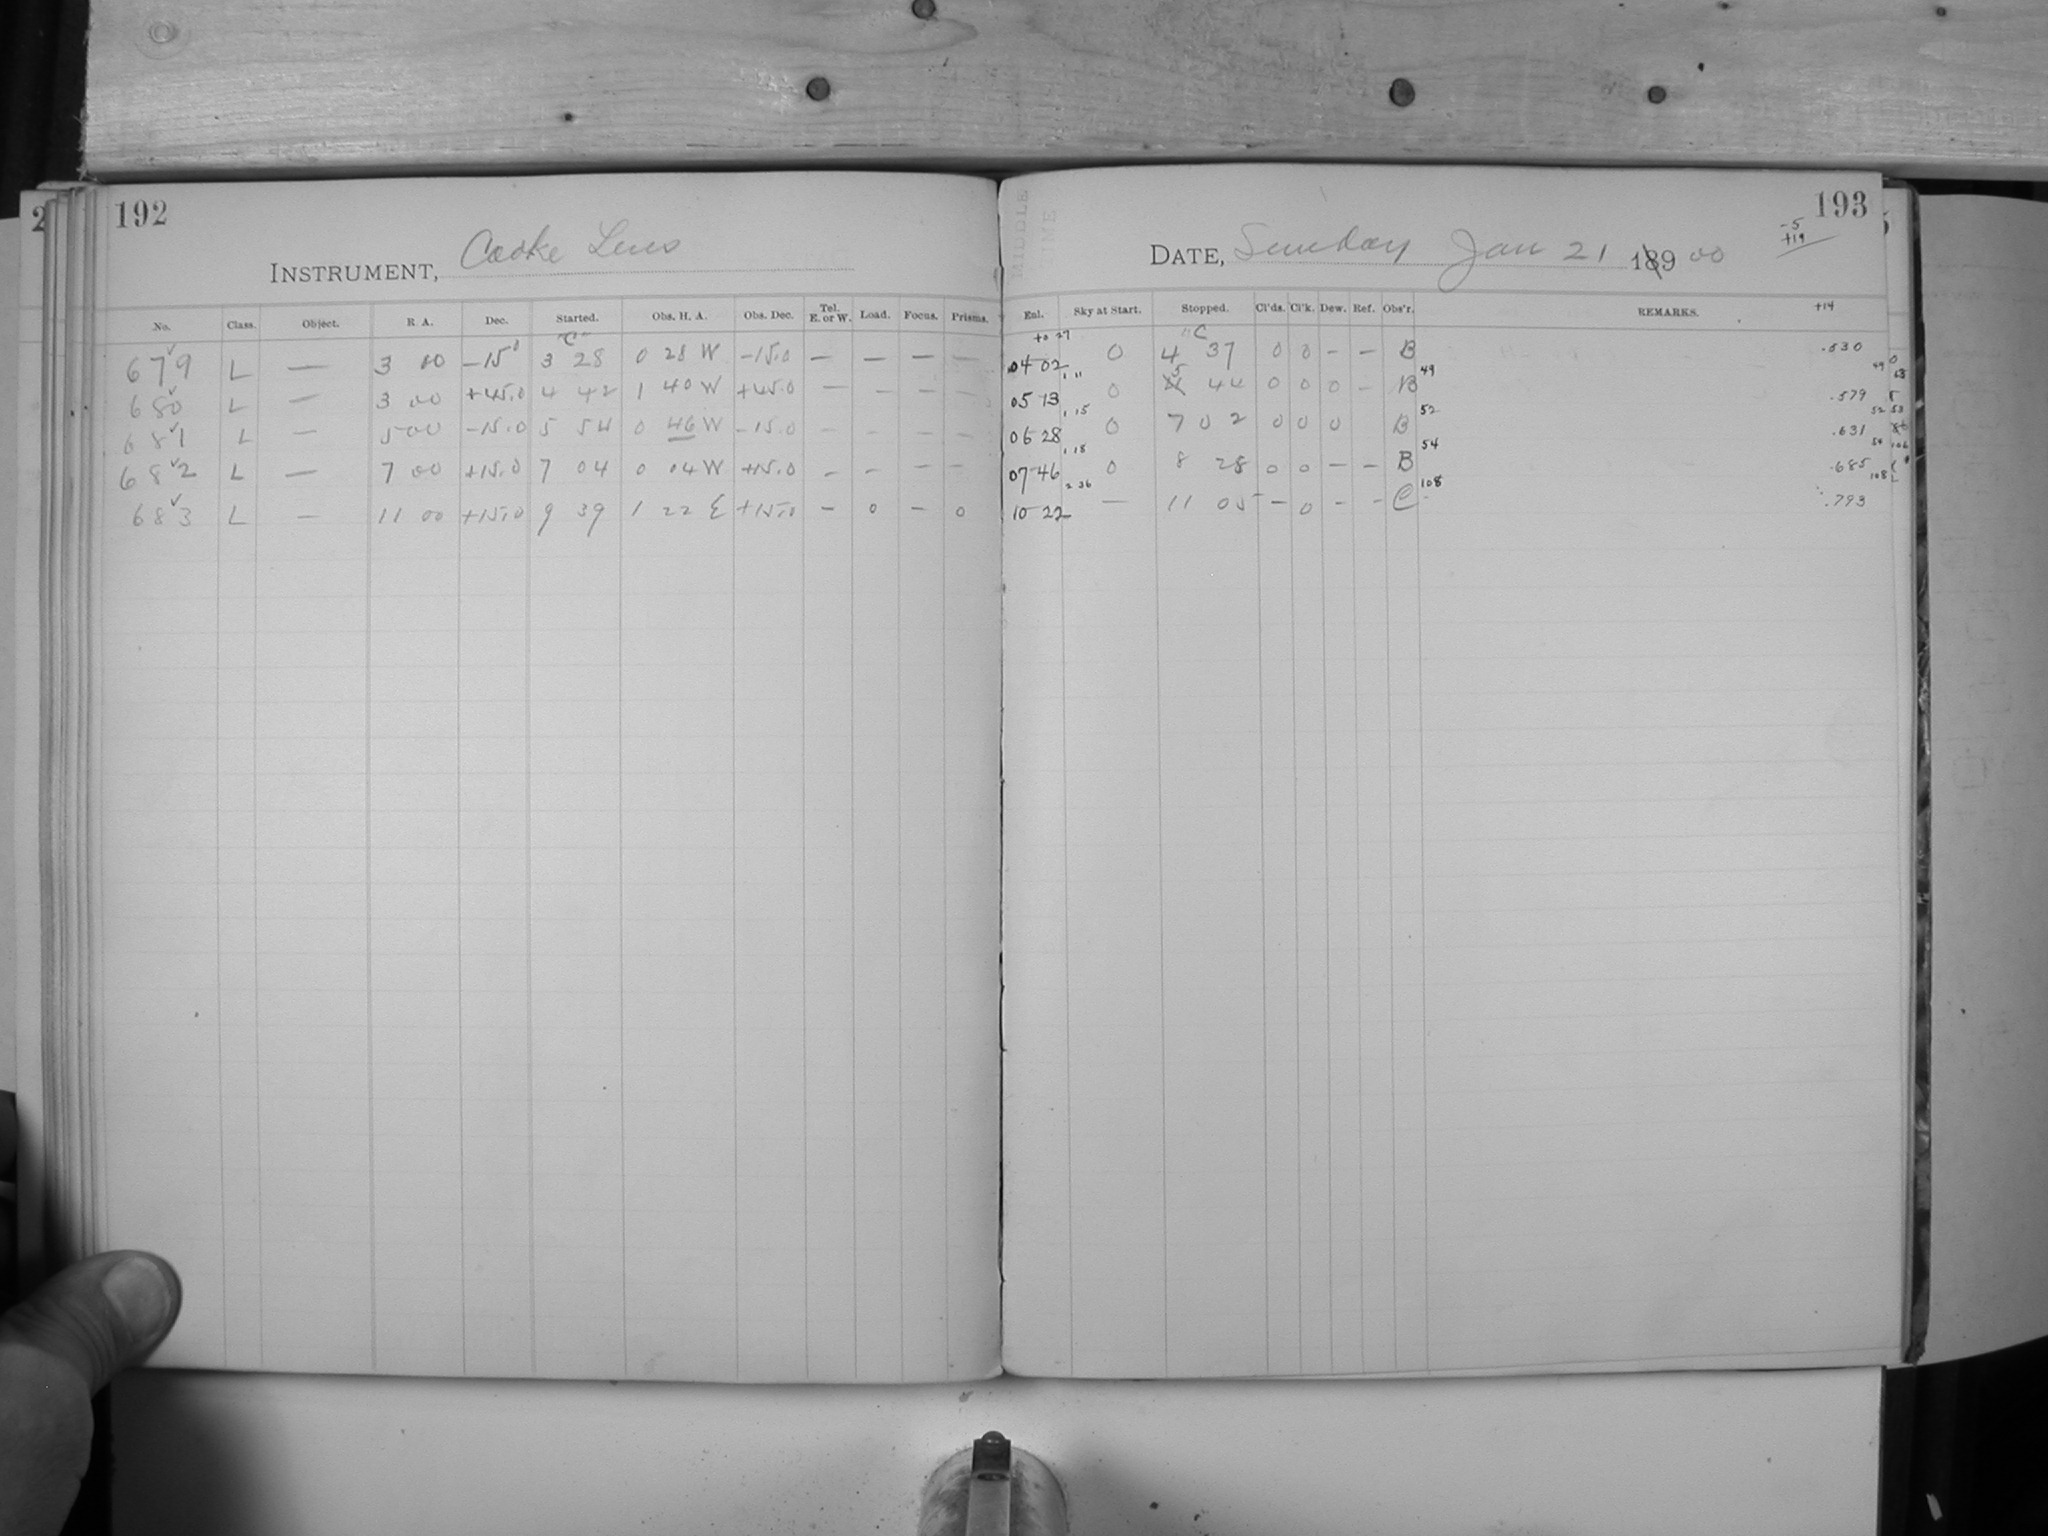 192
Cooke Lens
INSTRUMENT,
No. Class. Object. R. A. Dec. Started. Obs. H. A. Obs. Dec. Tel. E. or W. Load. Focus. Prisms.
"C"
679 L — 3 00 -15° 3 28 0 28 W -15.0 — — — —
680 L — 3 00 +45.0 4 42 1 40 W +45.0 — - - -
681 L — 5 00 -15.0 5 54 0 46 W -15.0 - - - -
682 L — 7 00 +15.0 7 04 0 04 W +15.0 - - - -
683 L — 11 00 +15.0 9 39 1 22 E +15.0 - 0 - 0
193
-5
+19
MIDDLE
DATE, Sunday Jan 21 189 00
+14
Enl. Sky at Start. Stopped. Cl'ds. Cl'k. Dew. Ref. Obs'r. REMARKS.
+0 27 "C
04 02 0 4 37 0 0 - - B .530
1 11 49 49
05 13 0 5 44 0 0 0 - B .579
1 15 52 52
06 28 0 7 02 0 0 0 B .631
1 18 54 54
07 46 0 8 28 0 0 - - B .685
2 36 108 108
10 22 — 11 05 - 0 - - C .793